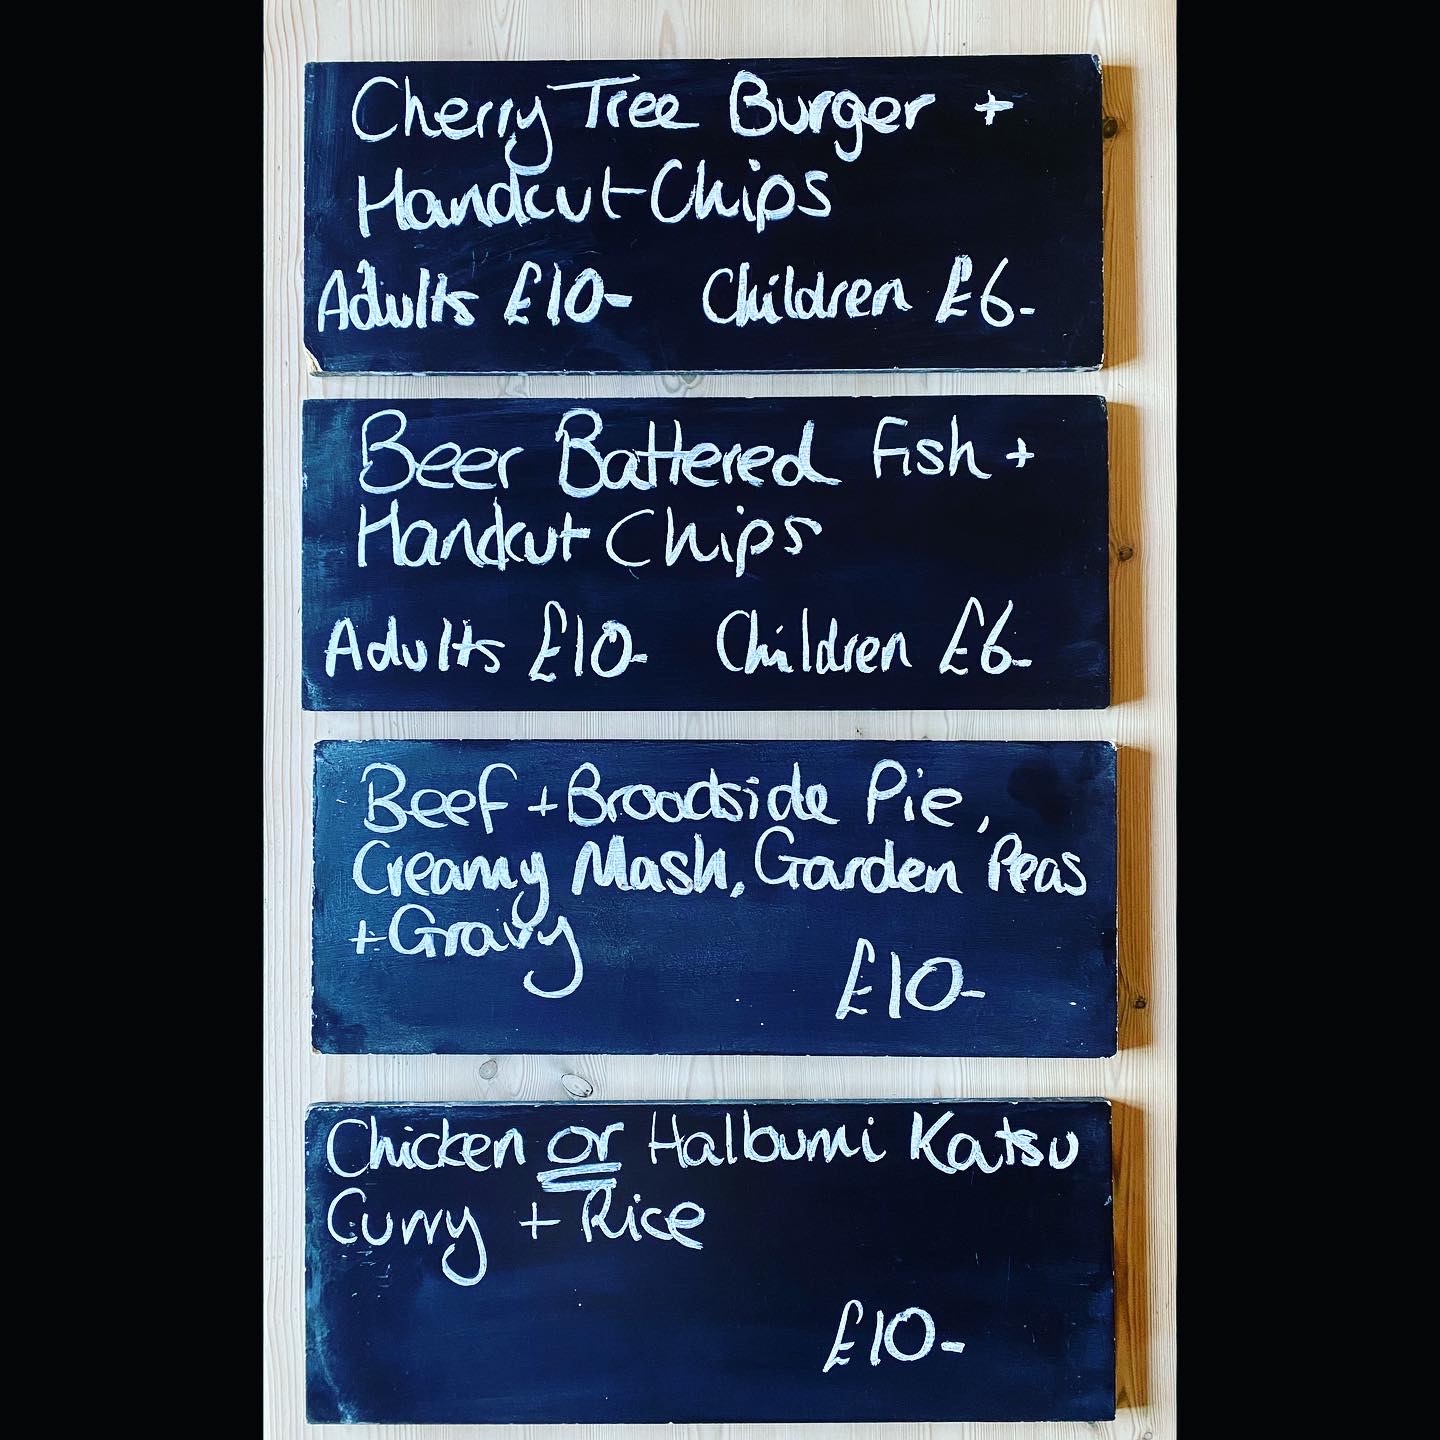 Cherry Tree Burger +
Handcut Chips
Adults £10- Children £6-
Beer Battered Fish +
Handcut Chips
Adults £10- Children £6-
Beef + Broadside Pie,
Creamy Mash, Garden Peas
+ Gravy
£10-
Chicken or Halloumi Katsu
Curry + Rice
£10-